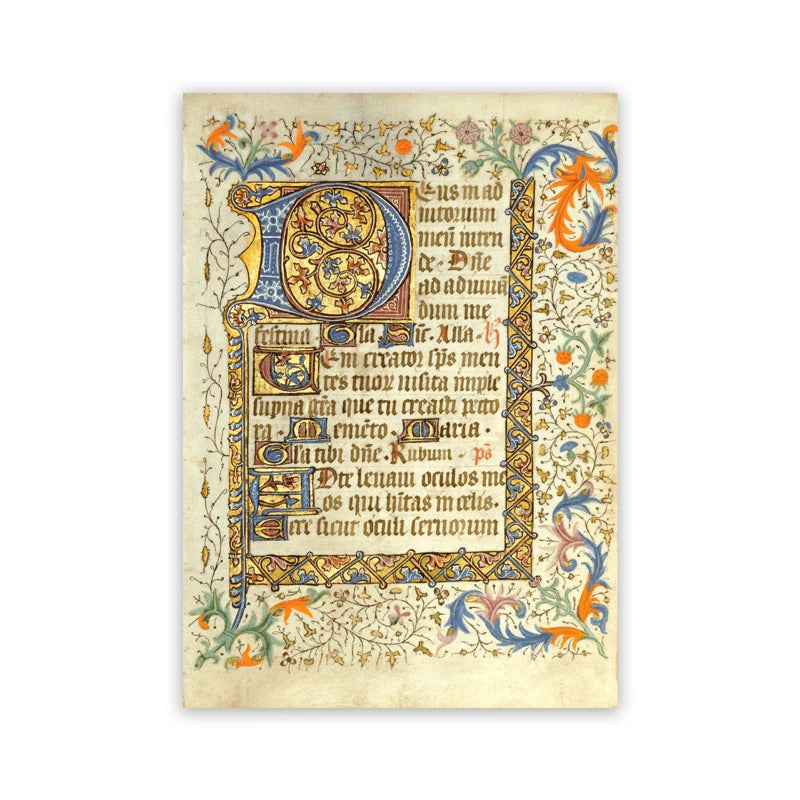 Deus in ad
iutorium
meū inten
de · Dn̄e
ad adiuuā
dum me
festina · Gl̄a · Sic̄ · Alla · H
Ueni creator sp̄s men
tes tuoꝝ uisita imple
supna gr̄a que tu creasti pecto
ra · Memēto · Maria ·
Gl̄a tibi dn̄e · Rubum · p̄s
Ad te leuaui oculos me
os qui hītas in celis ·
Ecce sicut oculi seruorum